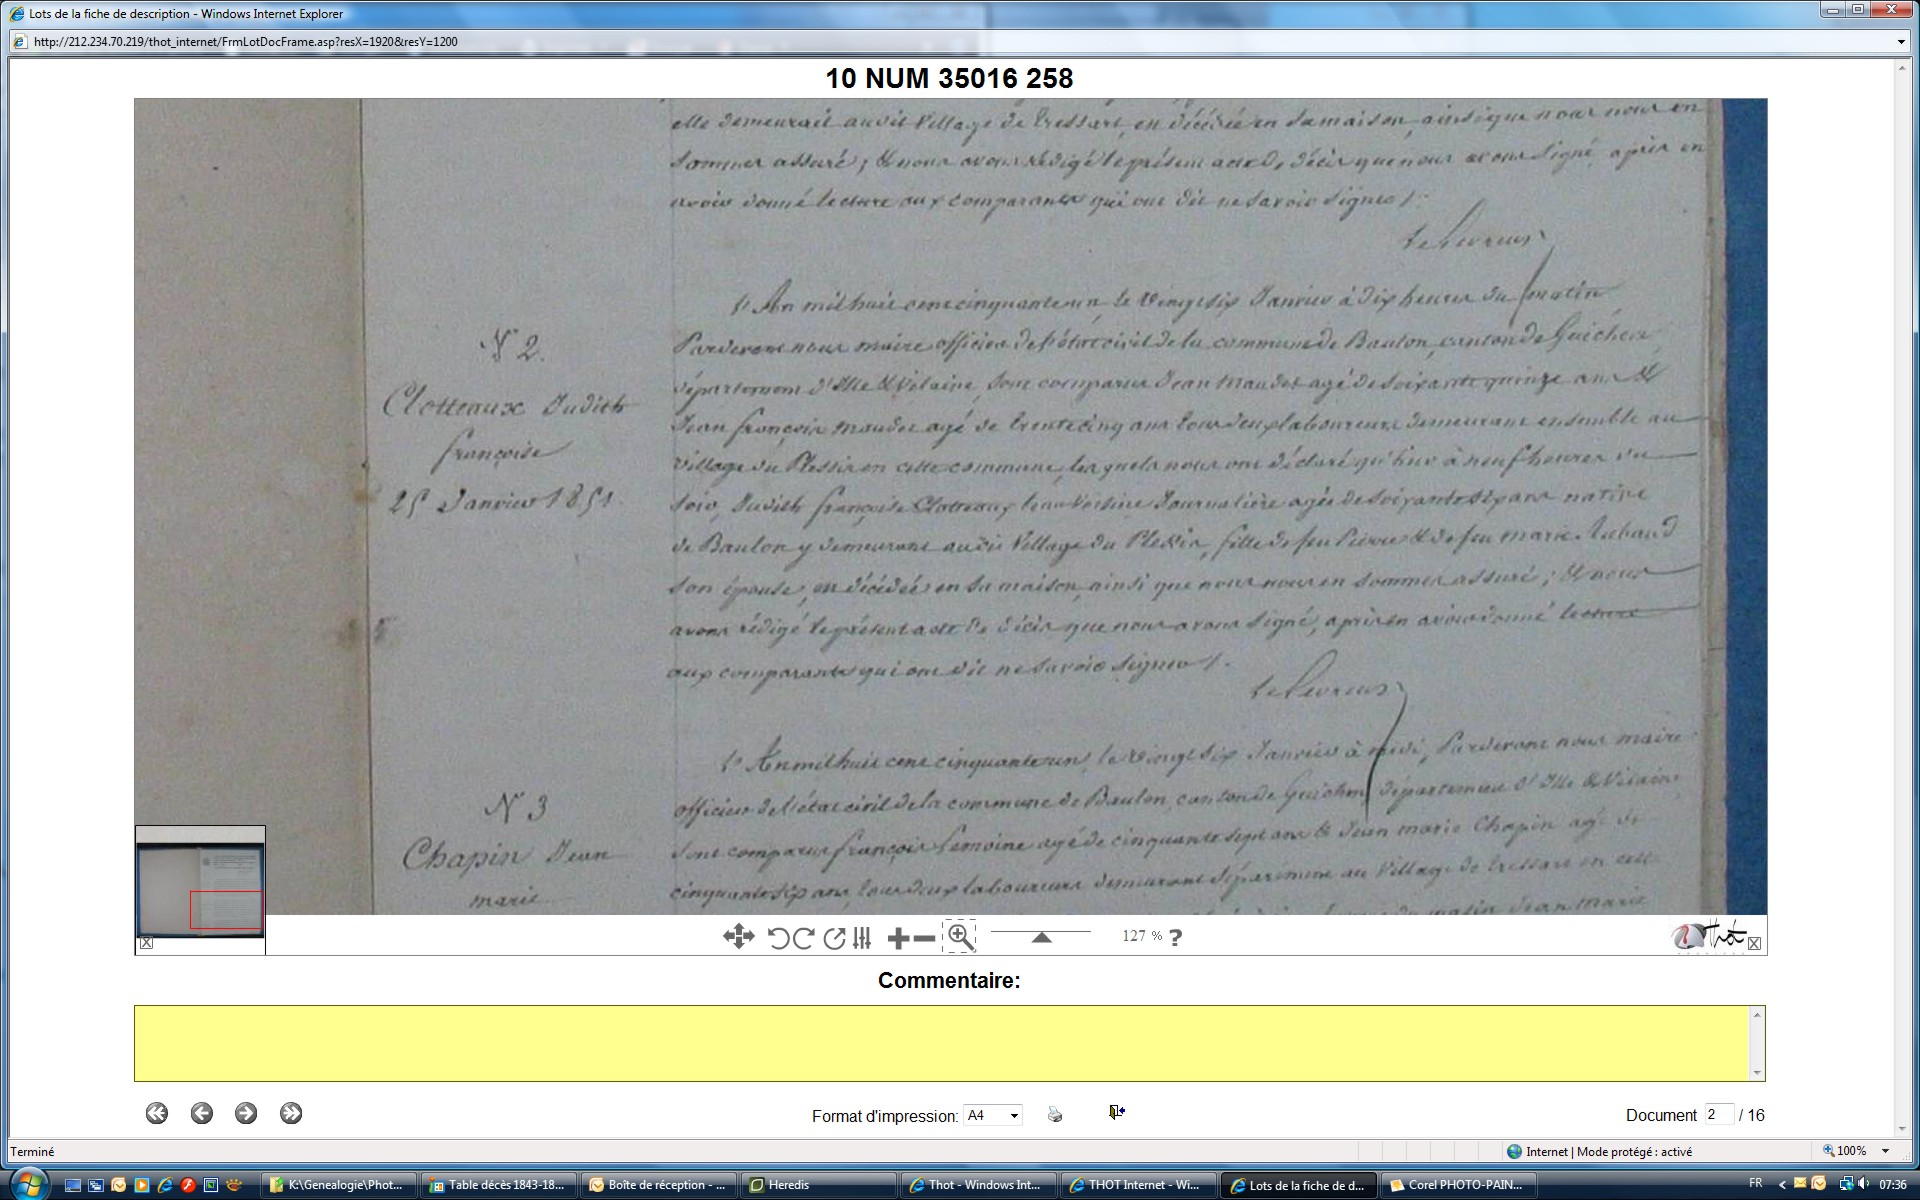 Lots de la fiche de description - Windows Internet Explorer
http://212.234.70.219/thot_internet/FrmLotDocFrame.asp?resX=1920&resY=1200
10 NUM 35016 258
elle demeurait audit Village de Tressart, en décédée en sa maison, ainsi que nous nous en
sommes assuré ; & nous avons rédigé le présent acte de décès que nous avons signé, après en
avoir donné lecture aux comparants qui ont dit ne savoir signer /.
N° 2.
Clotteaux Judith
françoise
25 Janvier 1851
L'An mil huit cent cinquante un, le vingt six Janvier à dix heures du matin
Pardevant nous maire officier de l'état civil de la commune de Baulon, canton de Guichen,
département d'Ille & Vilaine, sont comparus Jean maudet agé de soixante quinze ans &
Jean françois maudet agé de trente cinq ans tous deux laboureurs demeurant ensemble au
village du Plessix en cette commune, lesquels nous ont déclaré qu'hier à neuf heures du
soir, Judith françoise Clotteaux leur voisine Journalière agée de soixante six ans native
de Baulon y demeurant audit Village du Plessix, fille de feu Pierre & de feu marie
son épouse, en décédée en sa maison, ainsi que nous nous en sommes assuré ; & nous
avons rédigé le présent acte de décès que nous avons signé, après en avoir donné lecture
aux comparants qui ont dit ne savoir signer /.
N° 3
Chapin Jean
marie
L'An mil huit cent cinquante un, le vingt six Janvier à midi, Pardevant nous maire
officier de l'état civil de la commune de Baulon, canton de Guichen, département d'Ille & Vilaine
sont comparus françois Lemoine agé de cinquante sept ans & Jean marie Chapin agé de
cinquante six ans, tous deux laboureurs demeurant séparément au Village de Tressart en cette
du matin Jean marie
127 % ?
Thot
Commentaire:
Format d'impression: A4
Document 2 / 16
Terminé
Internet | Mode protégé : activé
100%
K:\Genealogie\Phot...
Table décès 1843-18...
Boîte de réception - ...
Heredis
Thot - Windows Int...
THOT Internet - Wi...
Lots de la fiche de d...
Corel PHOTO-PAIN...
FR
07:36